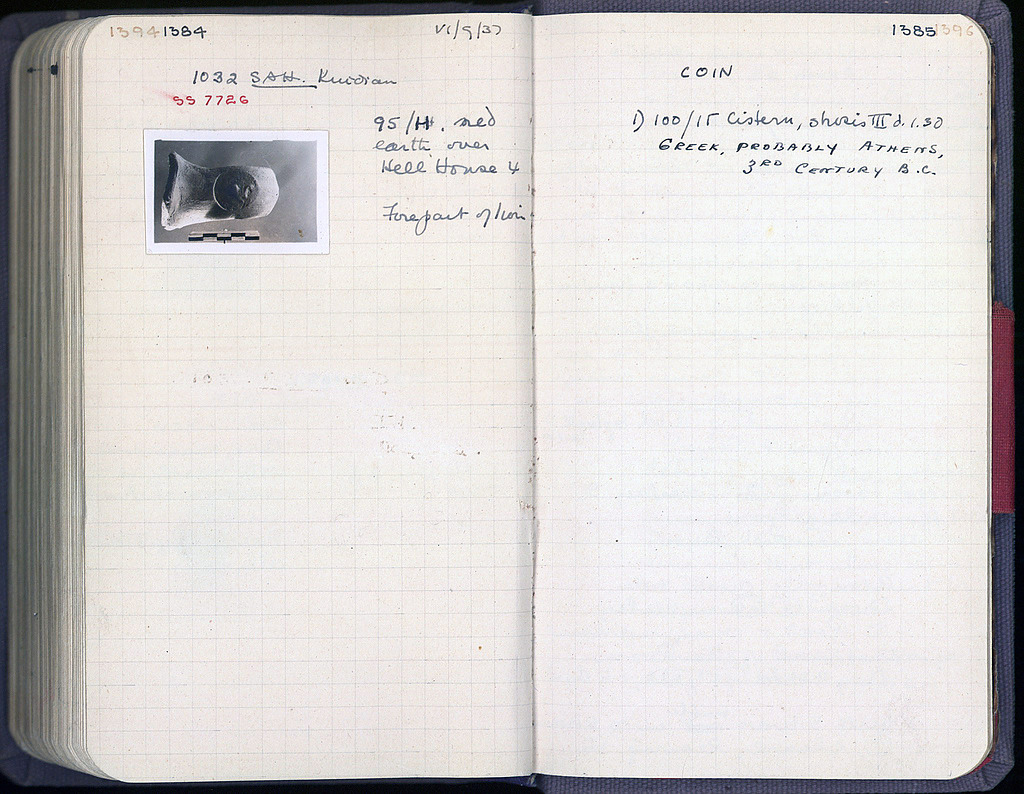 1394 1384
VI/9/37
1032 SAH. Knidian
SS 7726
95/H. med
earth over
Hell House 4
Forepart of lion
1385 1396
COIN
1) 100/ΙΓ Cistern, shois III d. 1.30
GREEK, PROBABLY ATHENS,
3RD CENTURY B.C.